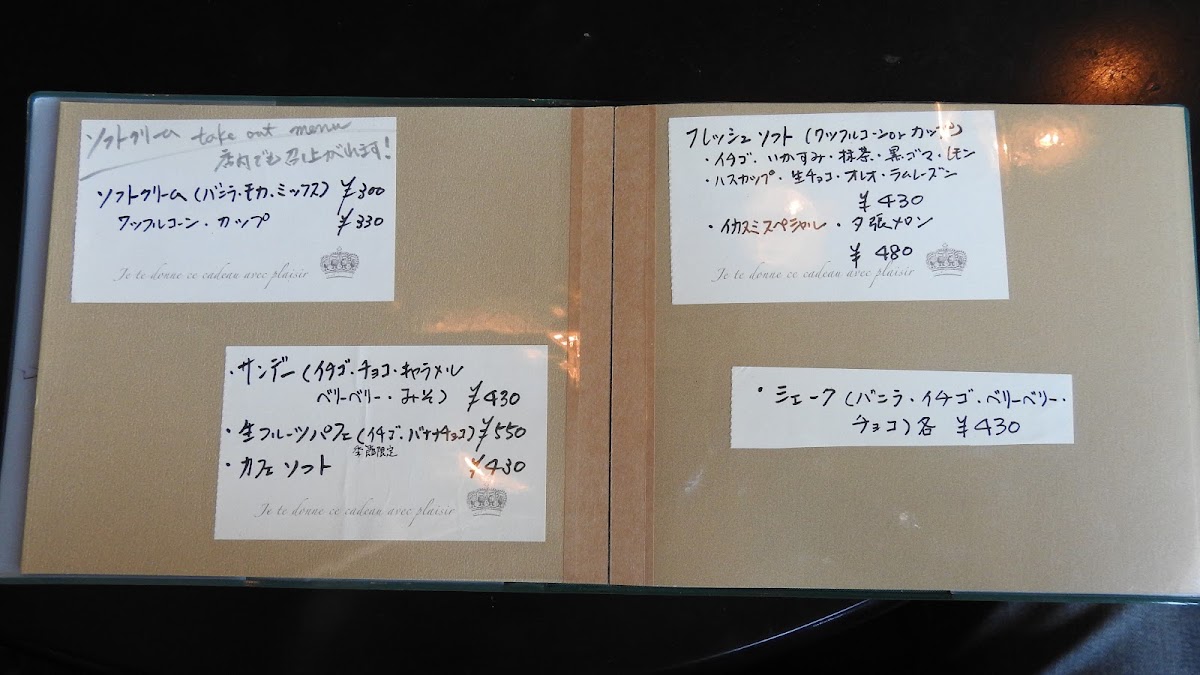 ソフトクリーム take out menu
店内でも召上がれます!
ソフトクリーム(バニラ・モカ・ミックス) ¥300
ワッフルコーン・カップ ¥330
Je te donne ce cadeau avec plaisir
・サンデー(イチゴ・チョコ・キャラメル
ベリーベリー・みそ) ¥430
・生フルーツパフェ(イチゴ・バナナチョコ) ¥550
季節限定
・カフェソフト ¥430
Je te donne ce cadeau avec plaisir
フレッシュソフト(ワッフルコーンor カップ)
・イチゴ・いかすみ・抹茶・黒ゴマ・レモン
・ハスカップ・生チョコ・オレオ・ラムレーズン
¥430
・イカスミスペシャル・夕張メロン
¥480
Je te donne ce cadeau avec plaisir
・シェーク(バニラ・イチゴ・ベリーベリー・
チョコ)各 ¥430